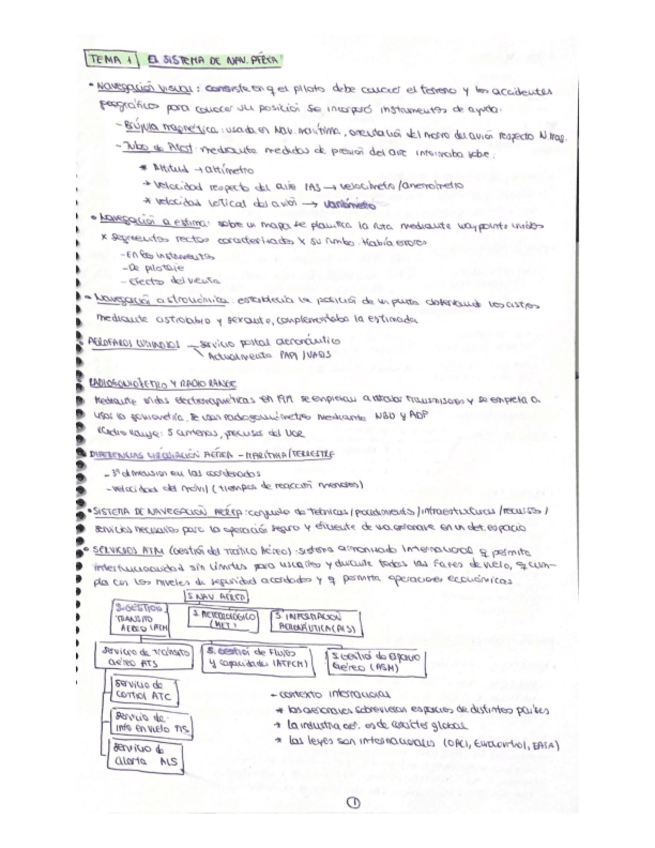 TEMA 1 EL SISTEMA DE NAV. AÉREA
• Navegación visual: consiste en q el piloto debe conocer el terreno y los accidentes
geográficos para conocer su posición. Se incorporó instrumentos de ayuda:
- Brújula magnética: usada en nav. marítima, orientación del morro del avión respecto N. mag.
- Tubo de Pitot: mediante medidas de presión del aire informaba sobre:
* Altitud → altímetro
* velocidad respecto del aire IAS → velocímetro/anemómetro
* velocidad vertical del avión → variómetro
• Navegación a estima: sobre un mapa se planifica la ruta mediante waypoints unidos
x segmentos rectos caracterizados x su rumbo. Había errores
- En los instrumentos
- De pilotaje
- Efecto del viento
• Navegación astronómica: establecía la posición de un punto observando los astros
mediante astrolabio y sextante, complementaba la estimada
AEROFAROS - servicio postal aeronáutico
Actualmente PAPI/VASIS
RADIOGONIOMETRO Y RADIO RANGE
Mediante ondas electromagnéticas en se empiezan a transmisores y se empieza a
usar la goniometría, se usan radiogoniómetros mediante NBD y ADF
Radio Range: 5 antenas, precursor del VOR
DIFERENCIAS AÉREA - MARÍTIMA/TERRESTRE
- 3ª dimensión en las coordenadas
- velocidad del móvil (tiempos de reacción menores)
• SISTEMA DE NAVEGACIÓN AÉREA: conjunto de técnicas/procedimientos/infraestructuras/recursos/
servicios necesarios para la operación segura y eficiente de una aeronave en un det. espacio
• SERVICIOS ATM (Gestión del Tráfico Aéreo): sistema armonizado internacional q permite
interfuncionalidad sin límites para usuarios y durante todas las fases de vuelo, q cum-
pla con los niveles de seguridad acordados y q permita operaciones económicas
S. NAV AÉREA
S. GESTIÓN TRÁNSITO AÉREO (ATM)
S. METEOROLÓGICO (MET)
S. INFORMACIÓN AERONÁUTICA (AIS)
Servicio de tránsito aéreo ATS
S. Gestión de Flujos y capacidades (ATFCM)
S. Gestión de Espacio Aéreo (ASM)
Servicio de control ATC
Servicio de info en vuelo FIS
Servicio de alerta ALS
- contexto internacional
* las aeronaves sobrevuelan espacios de distintos países
* la industria es de carácter global
* las leyes son internacionales (OACI, Eurocontrol, EASA)
1